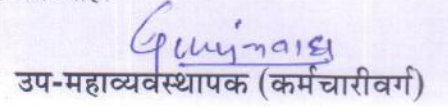 उप-महाव्यवस्थापक (कर्मचारीवर्ग)